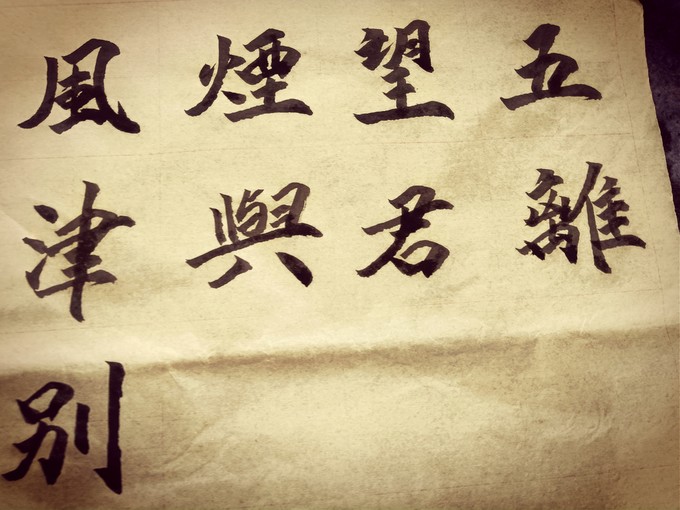 風煙望五
津與君離
別